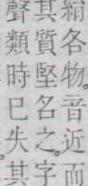 絹各物。音近而
其質堅名之。字
聲類時巳失其